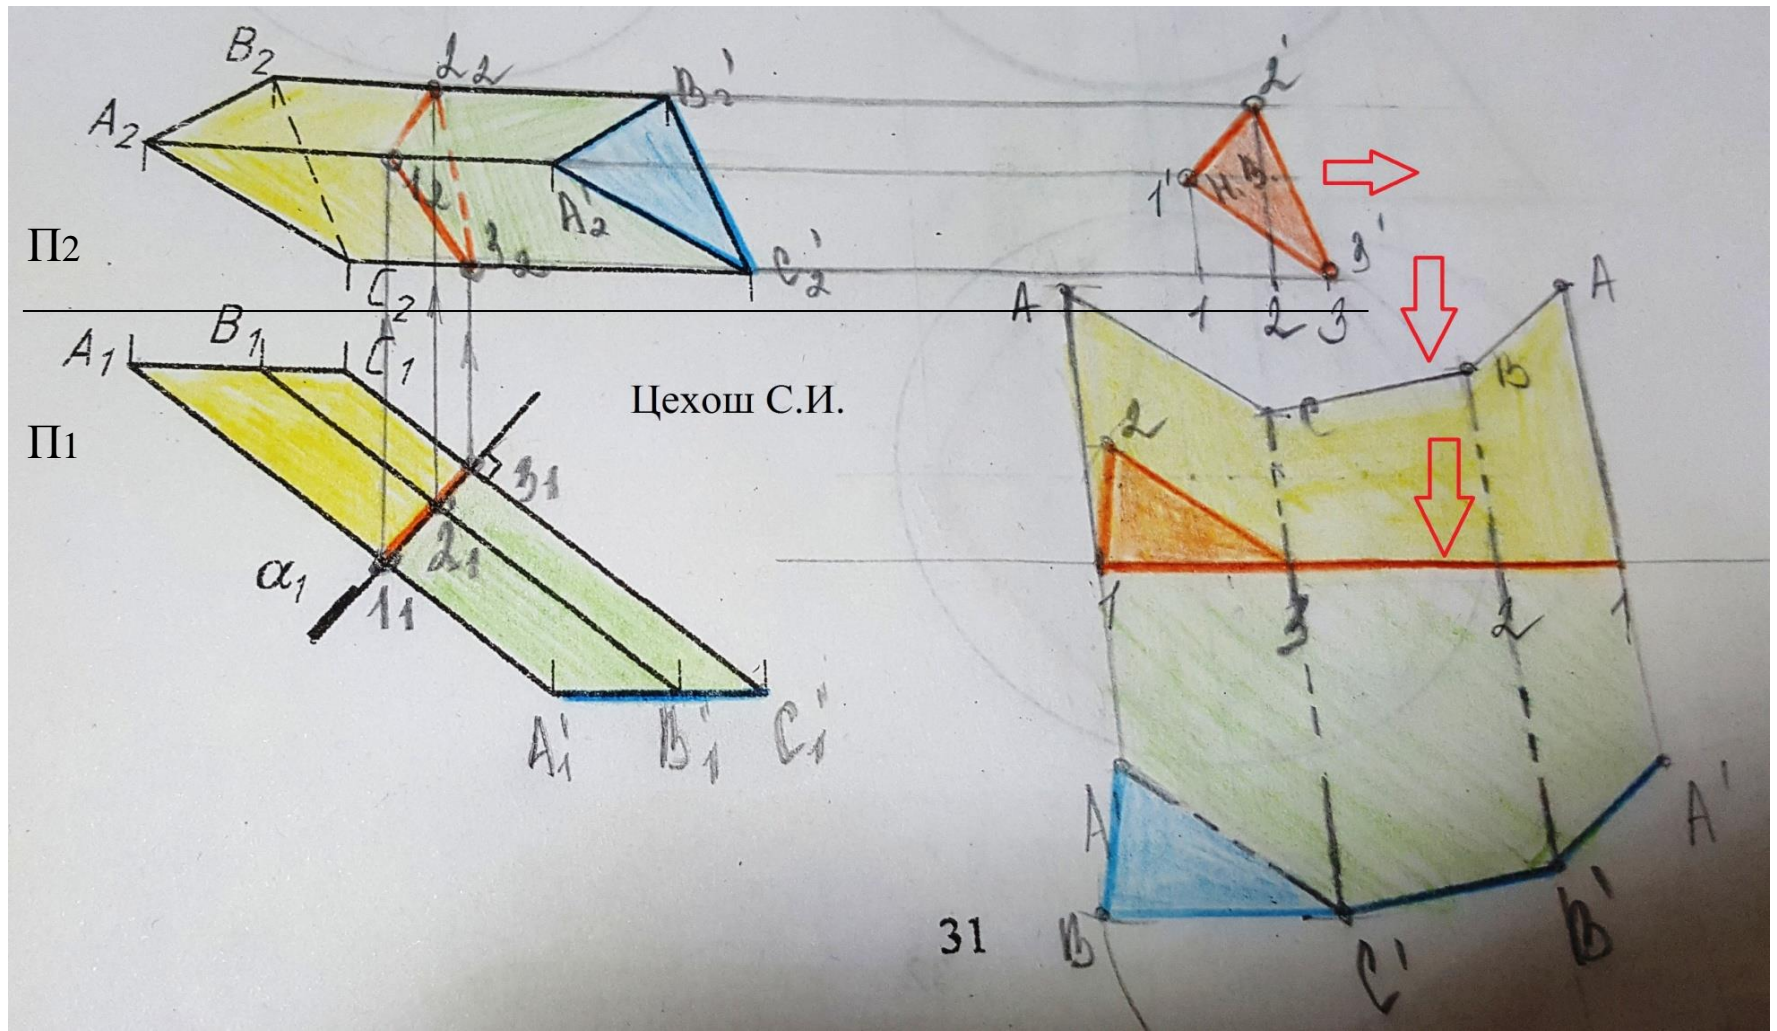 B₂
2₂
B₂'
2'
A₂
1₂
A₂'
1'
Н.В.
П2
3₂
C₂'
3'
C₂
A
1
2
3
A
A₁
B₁
C₁
Цехош С.И.
B
П1
2
C
3₁
α₁
1₁
2₁
1
3
2
1
A₁'
B₁'
C₁'
A
A'
31
B
C'
B'